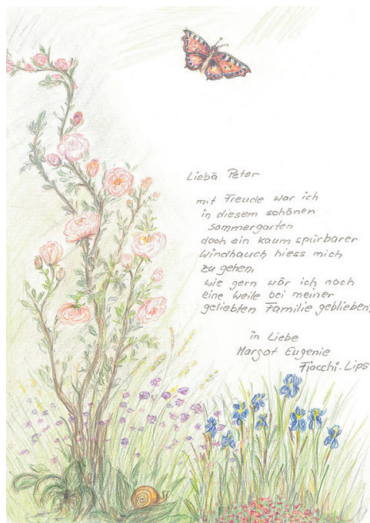 Liebä Peter
mit Freude war ich
in diesem schönen
sommergarten
doch ein kaum spürbarer
Windhauch hiess mich
zu gehen,
wie gern wär ich noch
eine Weile bei meiner
geliebten Familie geblieben,
in Liebe
Margot Eugenie
Fiocchi-Lips